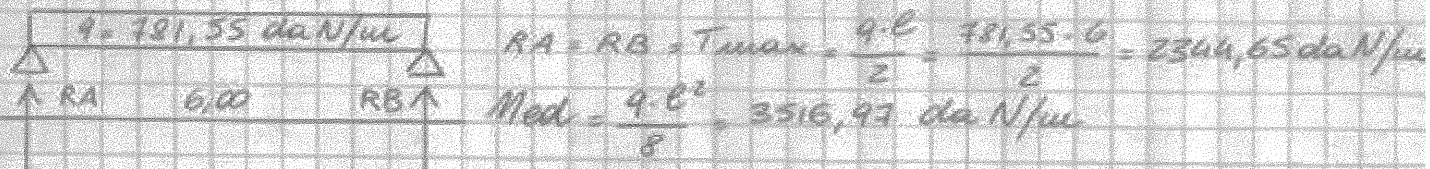 q = 781,55 daN/m
RA 6,00 RB
RA = RB = Tmax = q·l/2 = 781,55·6/2 = 2344,65 daN/m
Med = q·l²/8 = 3516,97 daN/m